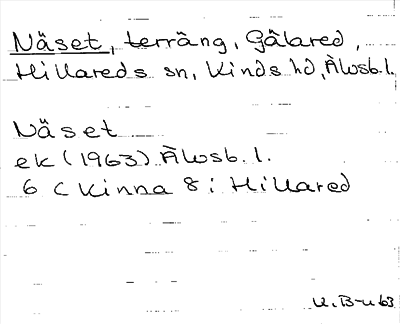 Näset, terräng, Gålared,
Hillareds sn, Kinds hd, Älvsb. l.
Näset
ek (1963) Älvsb. l.
6 C Kinna 8 i Hillared